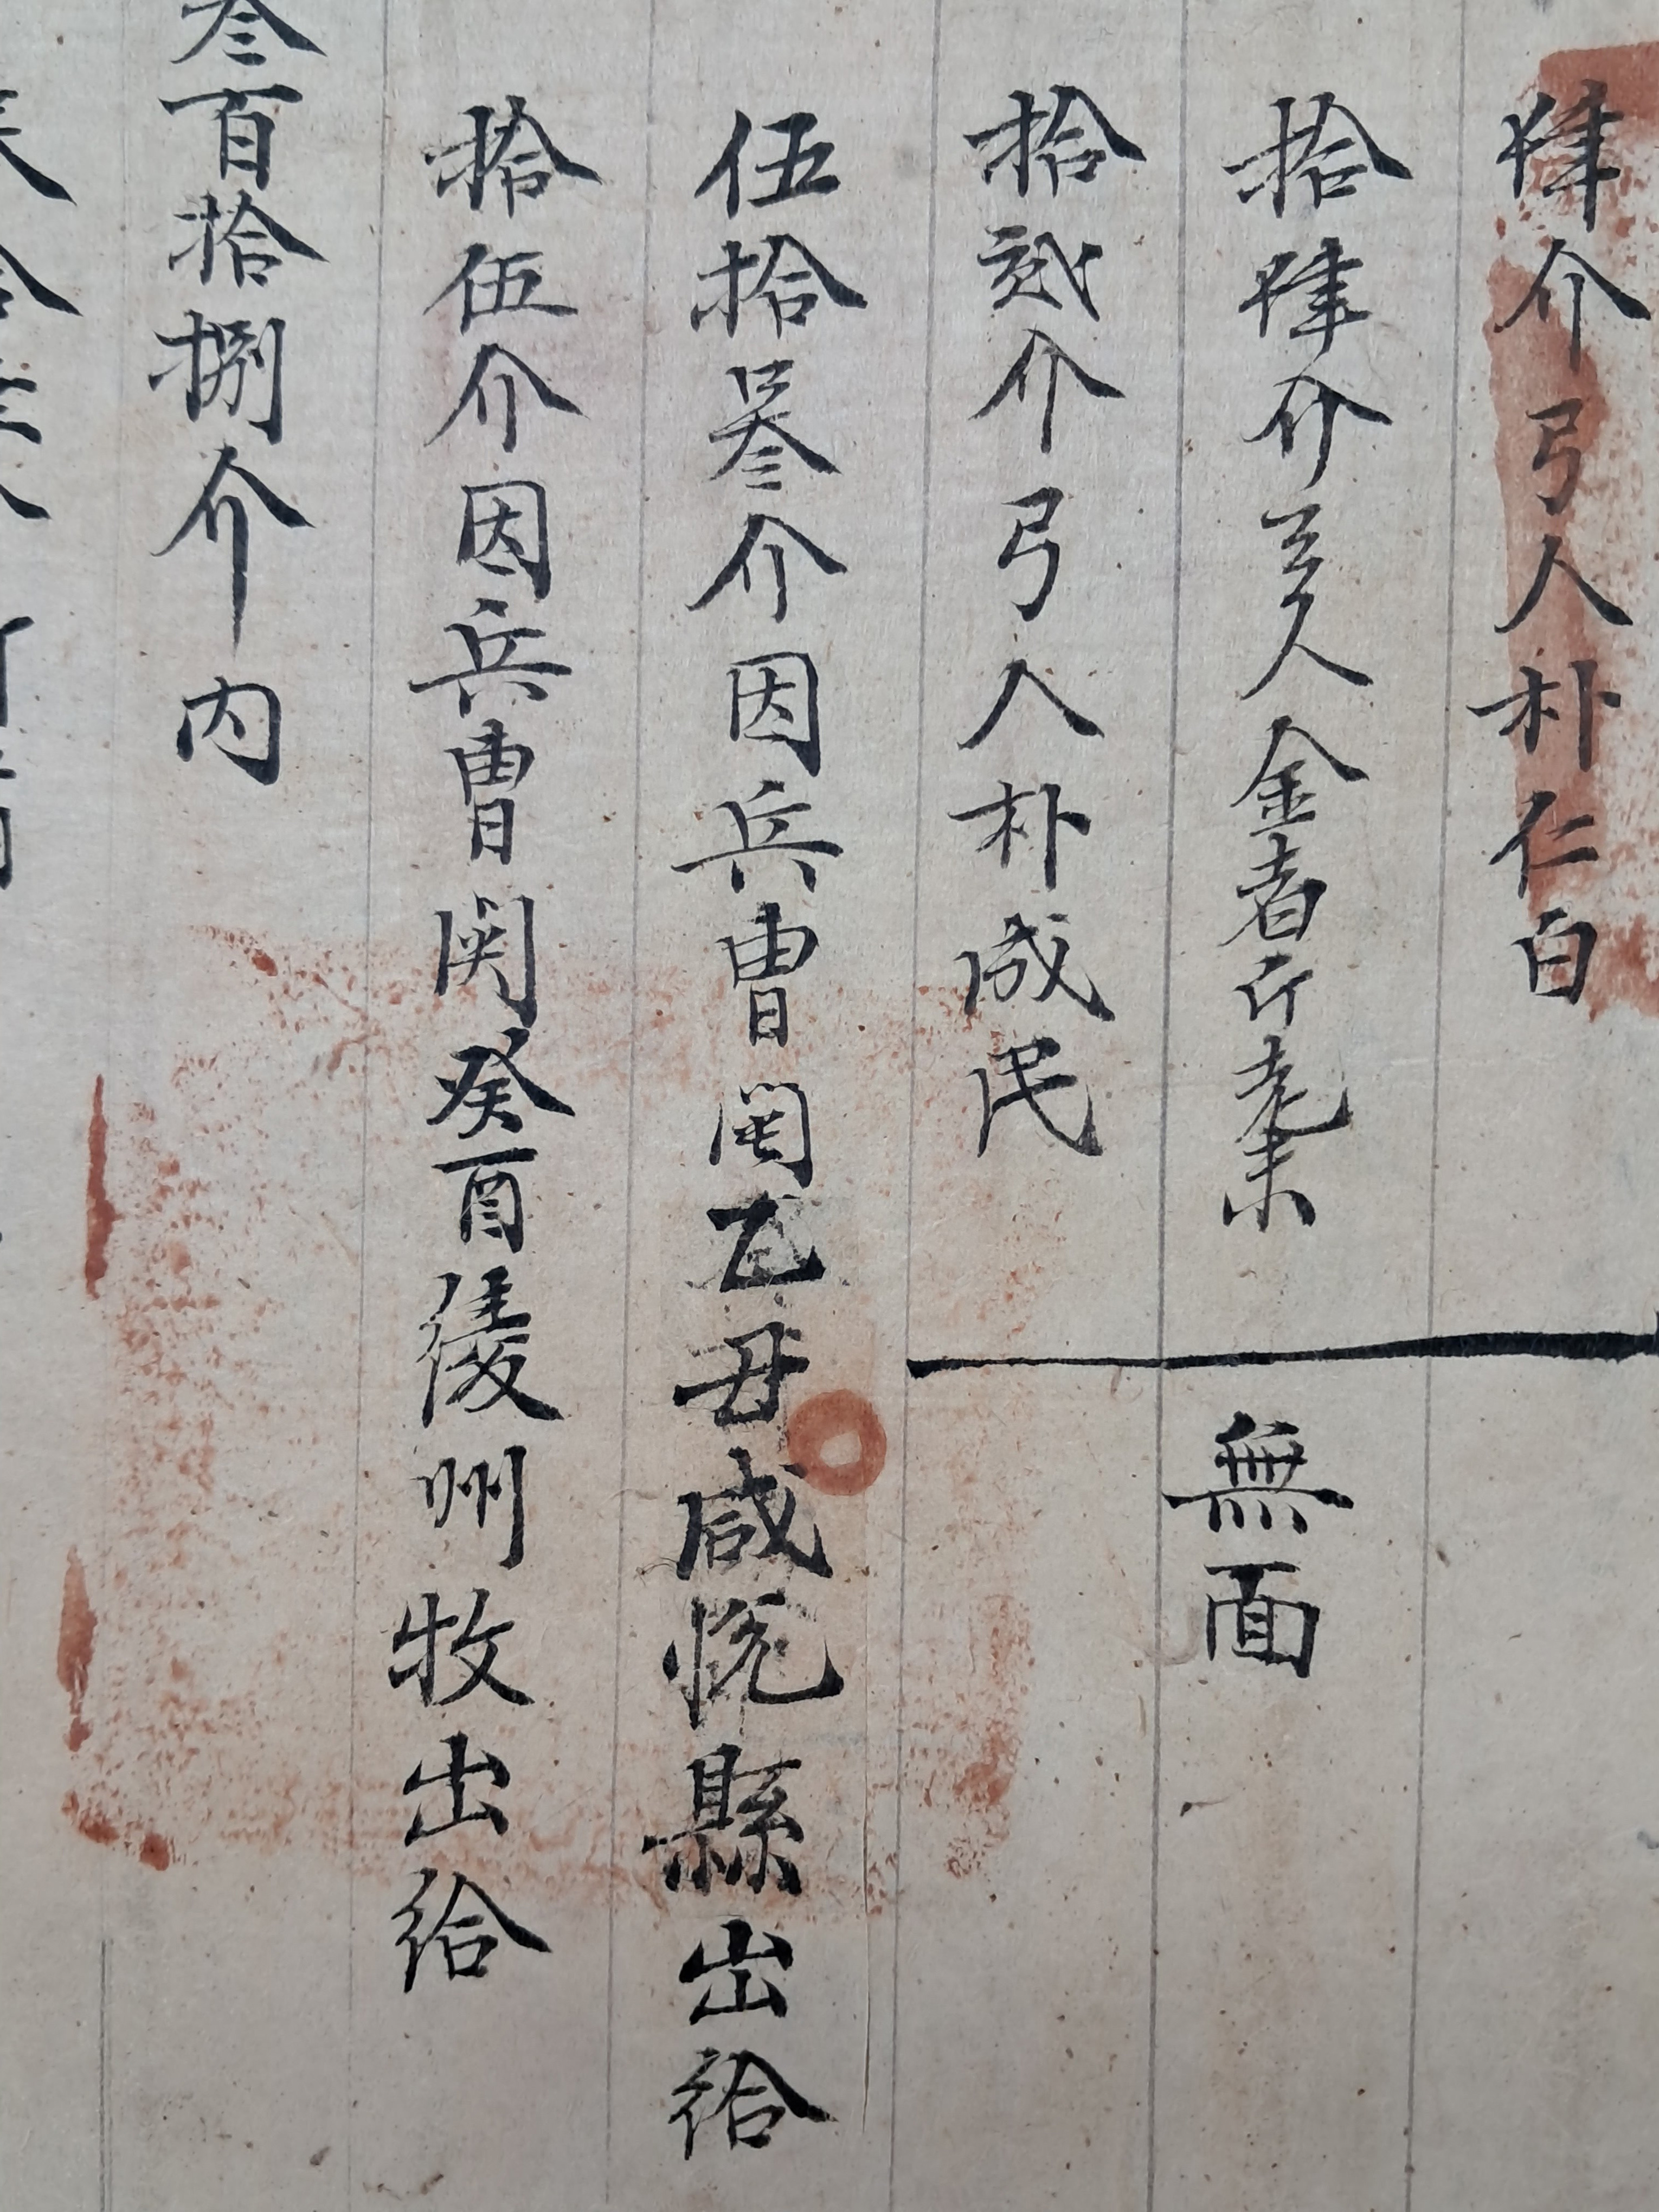 肆介弓人朴仁白
拾肆介弓人金者斤老未
無面
拾貳介弓人朴成民
伍拾叄介因兵曹関乙丑咸悅縣出給
拾伍介因兵曹関癸酉綾州牧出給
叄百拾捌介内